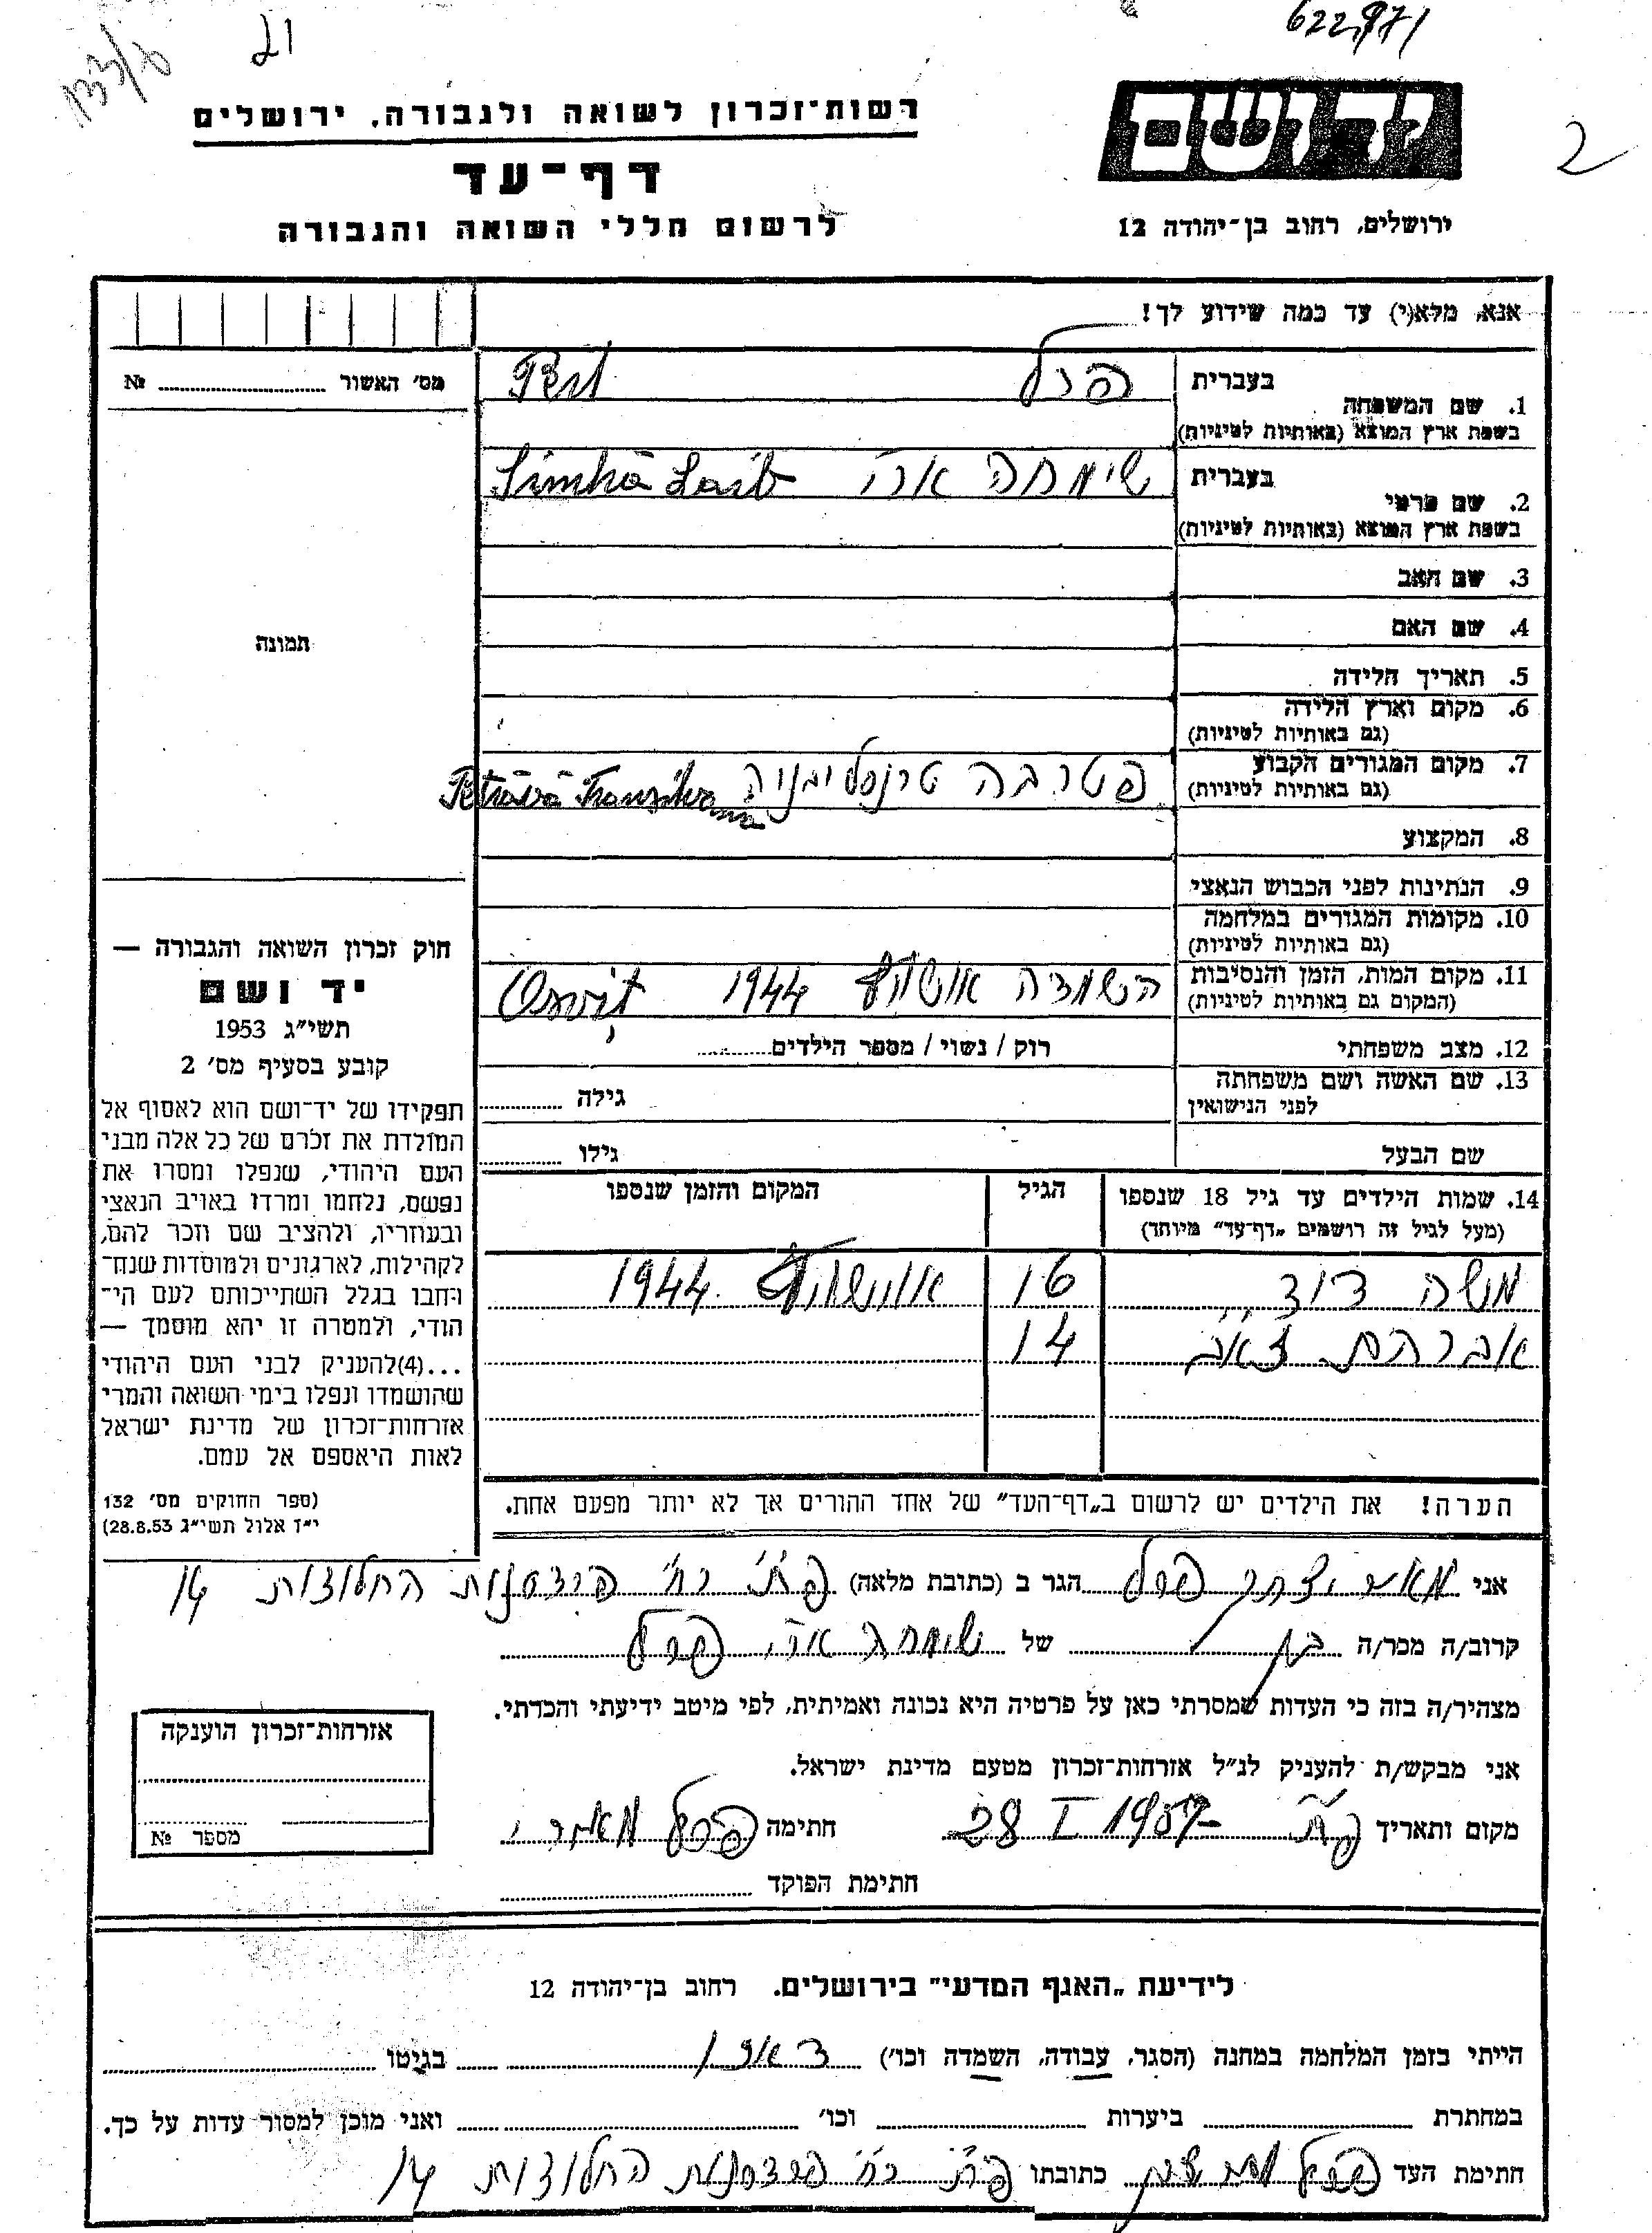 622971
21
133/6
2
יד ושם
רשות־זכרון לשואה ולגבורה, ירושלים
דף־עד
לרשום חללי השואה והגבורה
ירושלים, רחוב בן־יהודה 12
אנא, מלא(י) עד כמה שידוע לך!
מס׳ האשור № ........
1. שם המשפחה
בעברית פרל Perl
בשפת ארץ המוצא (באותיות לטיניות)
2. שם פרטי
בעברית שימחה ארי Simhă Laib
בשפת ארץ המוצא (באותיות לטיניות)
3. שם האב
4. שם האם
5. תאריך הלידה
6. מקום וארץ הלידה
(גם באותיות לטיניות)
7. מקום המגורים הקבוע פטרבה טרנסליבניה
(גם באותיות לטיניות)
8. המקצוע
9. הנתינות לפני הכבוש הנאצי
10. מקומות המגורים במלחמה
(גם באותיות לטיניות)
11. מקום המות, הזמן והנסיבות השמדה 1944
(המקום גם באותיות לטיניות)
12. מצב משפחתי רוק / נשוי / מספר הילדים........
13. שם האשה ושם משפחתה
לפני הנישואין
גילה ........
שם הבעל גילו ........
14. שמות הילדים עד גיל 18 שנספו הגיל המקום והזמן שנספו
(מעל לגיל זה רושמים „דף־עד” מיוחד)
משה דוד 16 1944
אברהם זאב 14
הערה! את הילדים יש לרשום ב„דף־העד” של אחד ההורים אך לא יותר מפעם אחת.
תמונה
חוק זכרון השואה והגבורה —
יד ושם
תשי״ג 1953
קובע בסעיף מס׳ 2
תפקידו של יד־ושם הוא לאסוף אל
המולדת את זכרם של כל אלה מבני
העם היהודי, שנפלו ומסרו את
נפשם, נלחמו ומרדו באויב הנאצי
ובעוזריו, ולהציב שם וזכר להם,
לקהילות, לארגונים ולמוסדות שנח־
רבו בגלל השתייכותם לעם הי־
הודי, ולמטרה זו יהא מוסמך —
...(4)להעניק לבני העם היהודי
שהושמדו ונפלו בימי השואה והמרי
אזרחות־זכרון של מדינת ישראל
לאות היאספם אל עמם.
(ספר החוקים מס׳ 132
י״ז אלול תשי״ג 28.8.53)
אני מאיר יצחק פרל הגר ב (כתובת מלאה) פ״ת רח׳ פרדסנות החלוצות 14
קרוב/ה מכר/ה בן של שימחה ארי פרל
מצהיר/ה בזה כי העדות שמסרתי כאן על פרטיה היא נכונה ואמיתית, לפי מיטב ידיעתי והכרתי.
אני מבקש/ת להעניק לנ״ל אזרחות־זכרון מטעם מדינת ישראל.
מקום ותאריך פ״ת 28 I 1957 חתימה פרל מאיר י
חתימת הפוקד ........
אזרחות־זכרון הוענקה
מספר №
לידיעת „האגף המדעי” בירושלים. רחוב בן־יהודה 12
הייתי בזמן המלחמה במחנה (הסגר, עבודה, השמדה וכו׳) דאכו בגיטו ........
במחתרת ........ ביערות ........ וכו׳ ........ ואני מוכן למסור עדות על כך.
חתימת העד פרל כתובתו פ״ת רח׳ פרדסנות החלוצות 14